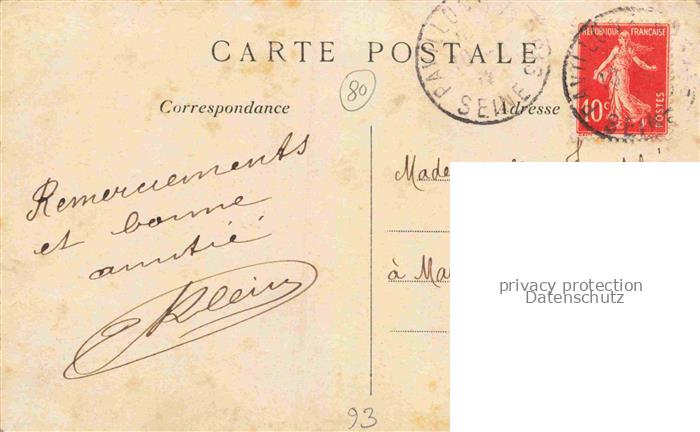 CARTE POSTALE
Correspondance
Adresse
80
PAVILLO
SEINE
RÉPUBLIQUE FRANÇAISE
10c
POSTES
PAVILLO
SEINE
Remerciements
et bonne
amitié
Klein
Made
à Ma
privacy protection
Datenschutz
93